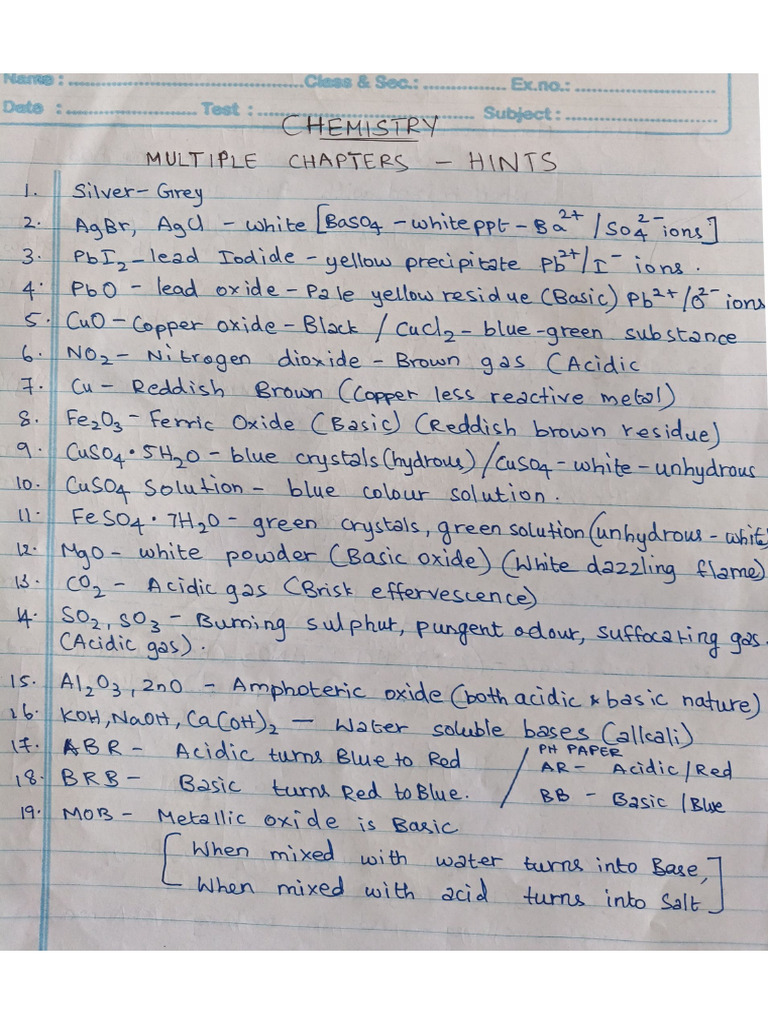 Name : ............................................... Class & Sec.: ................ Ex.no.: ...........................
Date : ......................... Test : ........................................... Subject : ...............................
CHEMISTRY
MULTIPLE CHAPTERS - HINTS
1. Silver - Grey
2. AgBr, AgCl - white [BaSO4 - white ppt - Ba2+ / SO4 2- ions]
3. PbI2 - lead Iodide - yellow precipitate Pb2+/I- ions.
4. PbO - lead oxide - Pale yellow residue (Basic) Pb2+/O2- ions
5. CuO - Copper oxide - Black / CuCl2 - blue-green substance
6. NO2 - Nitrogen dioxide - Brown gas (Acidic
7. Cu - Reddish Brown (Copper less reactive metal)
8. Fe2O3 - Ferric Oxide (Basic) (Reddish brown residue)
9. CuSO4 • 5H2O - blue crystals (hydrous) / CuSO4 - white - unhydrous
10. CuSO4 Solution - blue colour solution.
11. FeSO4 • 7H2O - green crystals, green solution (unhydrous - white
12. MgO - white powder (Basic oxide) (White dazzling flame)
13. CO2 - Acidic gas (Brisk effervescence)
14. SO2, SO3 - Burning sulphur, pungent odour, suffocating gas.
(Acidic gas).
15. Al2O3, ZnO - Amphoteric oxide (both acidic & basic nature)
16. KOH, NaOH, Ca(OH)2 - Water soluble bases (alkali)
17. ABR - Acidic turns Blue to Red / PH PAPER AR - Acidic / Red
18. BRB - Basic turns Red to Blue. / BB - Basic / Blue
19. MOB - Metallic oxide is Basic
[When mixed with water turns into Base,
When mixed with acid turns into Salt]